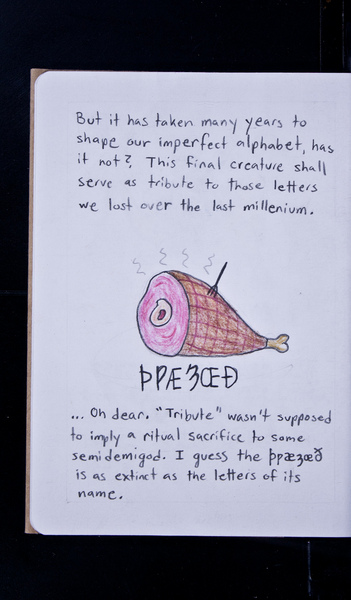 But it has taken many years to
shape our imperfect alphabet, has
it not? This final creature shall
serve as tribute to those letters
we lost over the last millenium.
ÞǷÆȜŒÐ
... Oh dear. "Tribute" wasn't supposed
to imply a ritual sacrifice to some
semidemigod. I guess the þƿæȝœð
is as extinct as the letters of its
name.